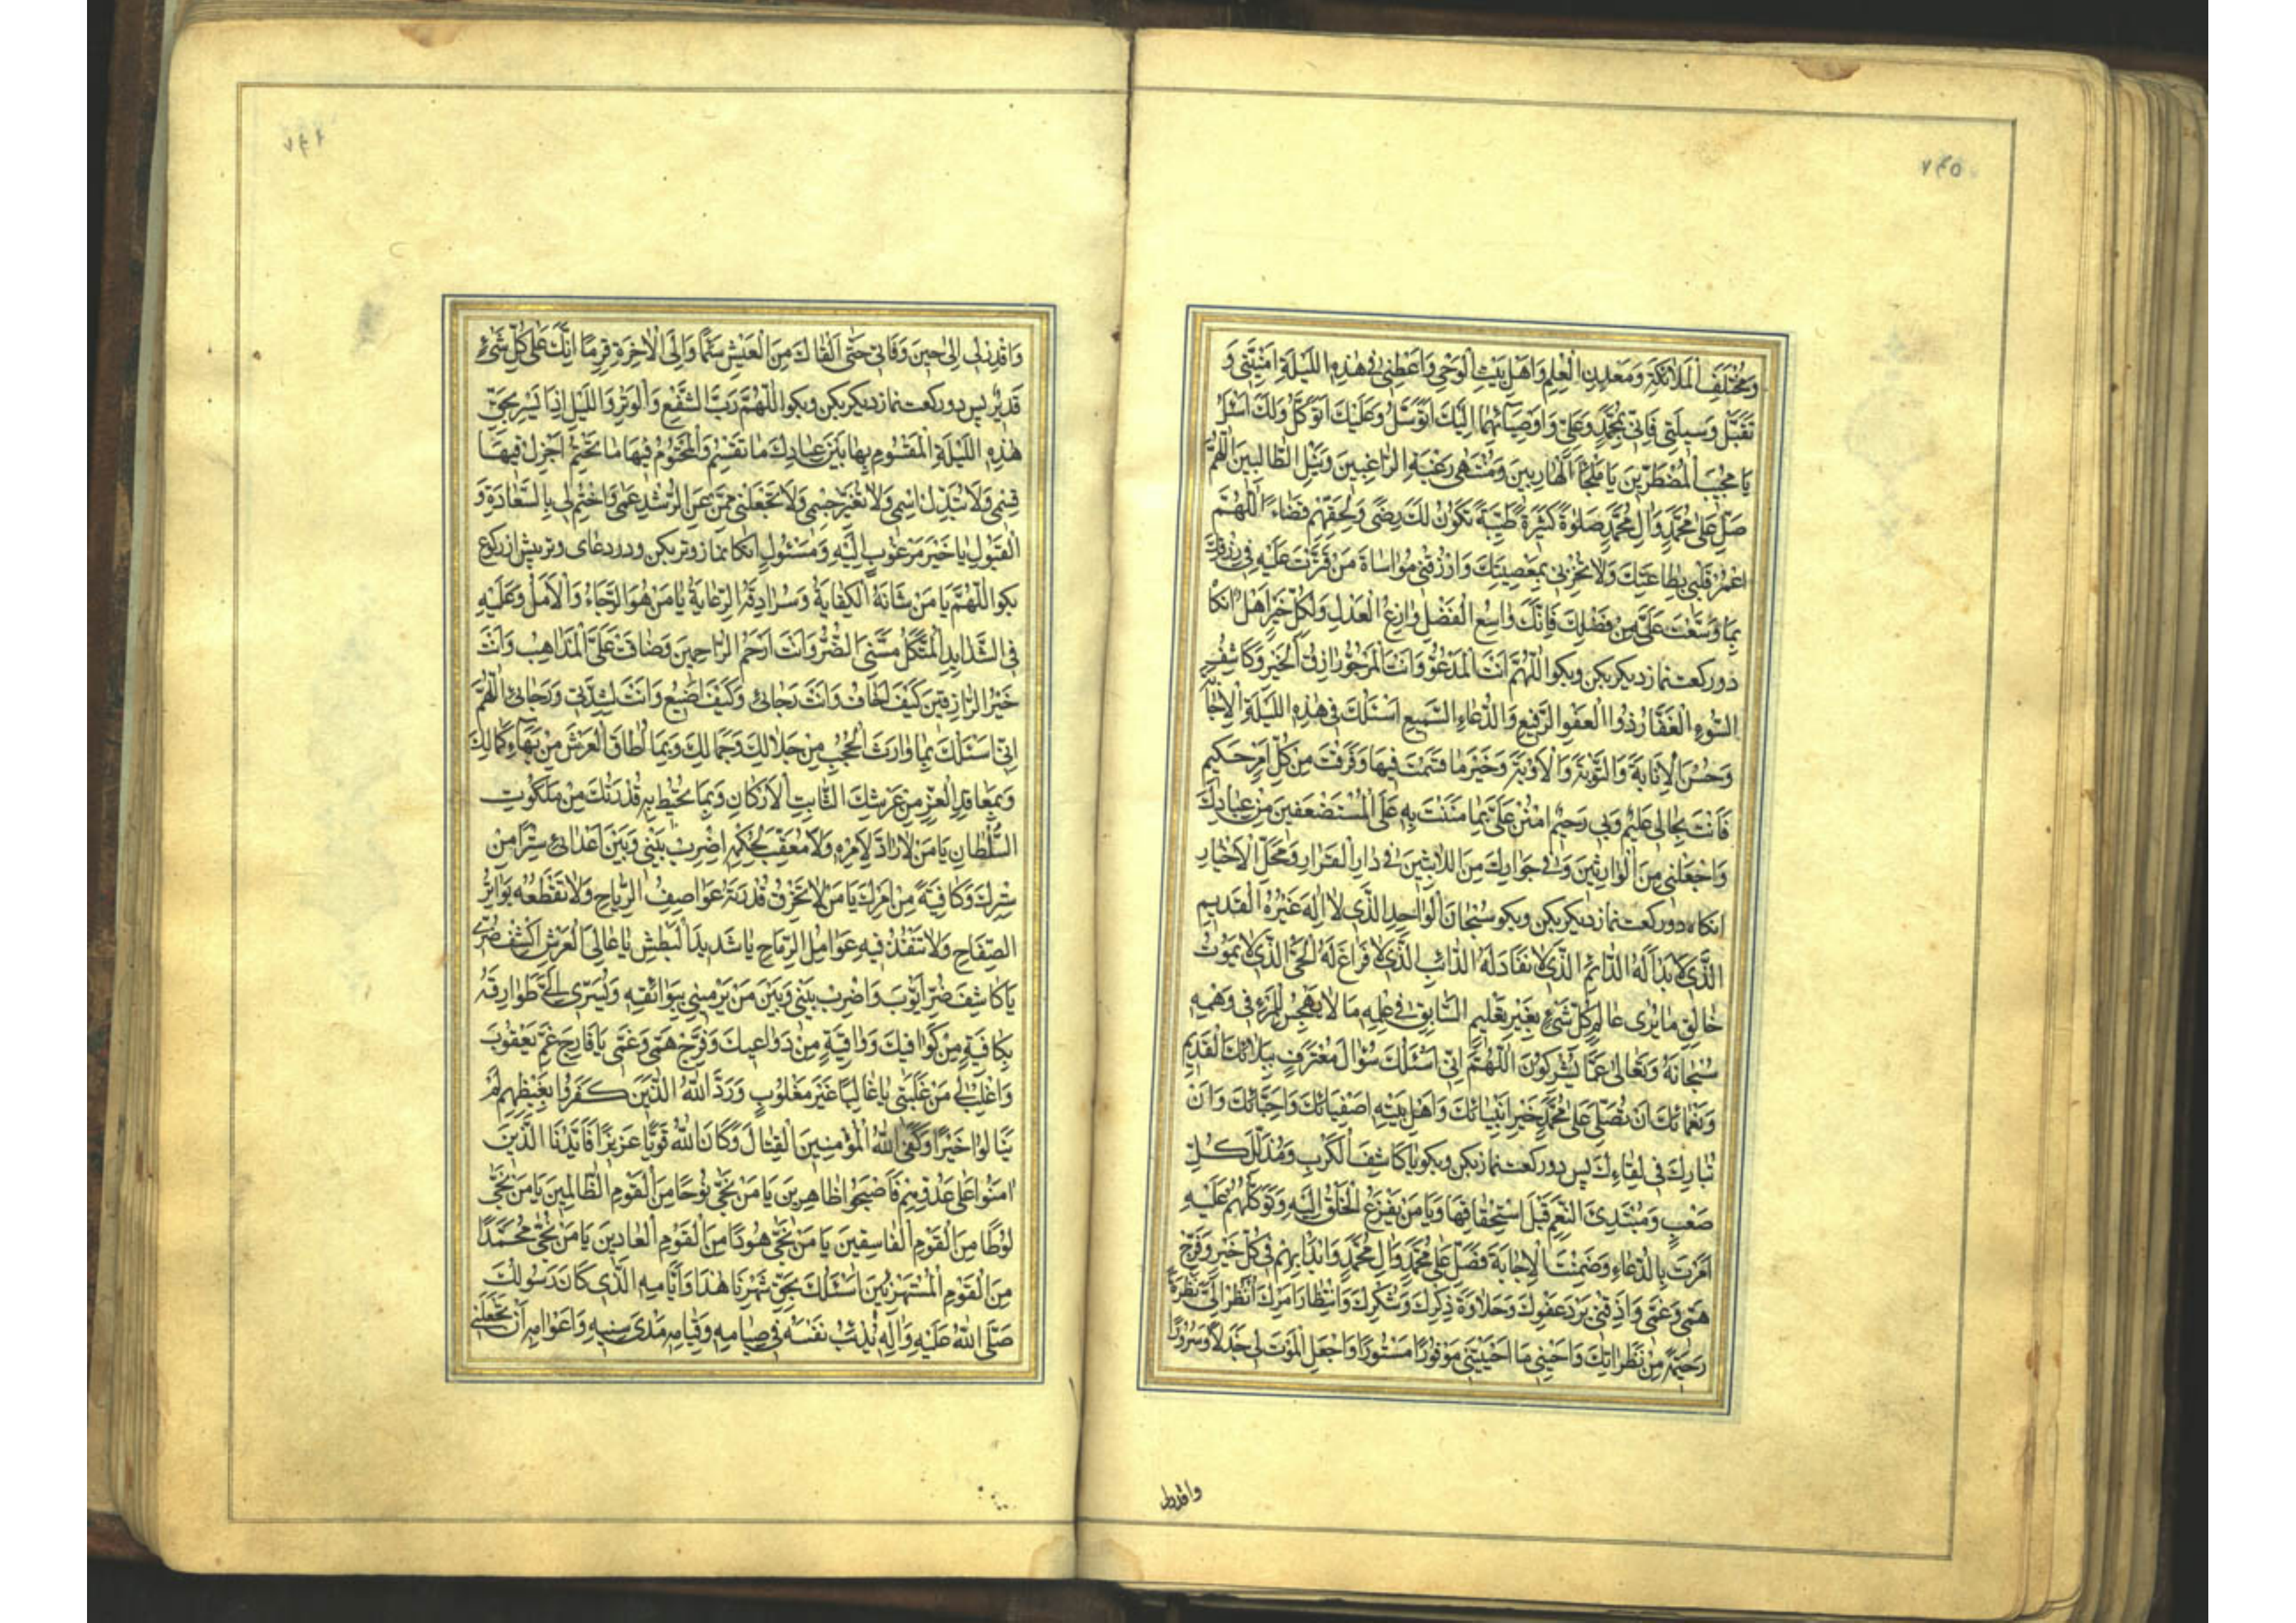 ٧٤٥
وَمُخْتَلَفِ الْمَلائِكَةِ وَمَعْدِنِ الْعِلْمِ وَاَهْلِ بَيْتِ الْوَحْيِ وَاَعْطِنى فى هٰذِهِ اللَّيْلَةِ اُمْنِيَّتى وَ
تَقَبَّلْ وَسيلَتى فَاِنّى بِمُحَمَّدٍ وَعَلِىٍّ وَاَوْصِيائِهِما اِلَيْكَ اَتَوَسَّلُ وَعَلَيْكَ اَتَوَكَّلُ وَلَكَ اَسْئَلُ
يا مُجيبَ الْمُضْطَرّينَ يا مَلْجَأَ الْهارِبينَ وَمُنْتَهى رَغْبَةِ الرّاغِبينَ وَنَيْلِ الطّالِبينَ اَللّهُمَّ
صَلِّ عَلى مُحَمَّدٍ وَالِ مُحَمَّدٍ صَلوةً كَثيرَةً طَيِّبَةً تَكُونُ لَكَ رِضىً وَلِحَقِّهِمْ قَضاءً اَللّهُمَّ
اعْمُرْ قَلْبى بِطاعَتِكَ وَلا تُخْزِنى بِمَعْصِيَتِكَ وَارْزُقْنى مُواساةَ مَنْ قَتَّرْتَ عَلَيْهِ فى رِزْقِكَ
بِما وَسَّعْتَ عَلَىَّ مِنْ فَضْلِكَ فَاِنَّكَ واسِعُ الْفَضْلِ وازِعُ الْعَدْلِ وَلِكُلِّ خَيْرٍ اَهْلٌ انكا
دو ركعت نماز ديكر بكن وبكو اَللّهُمَّ اَنْتَ الْمَدْعُوُّ وَاَنْتَ الْمَرْجُوُّ رازِقُ الْخَيْرِ وَكاشِفُ
السُّوءِ الْغَفّارُ ذُو الْعَفْوِ الرَّفيعِ وَالدُّعاءِ السَّميعِ اَسْئَلُكَ فى هٰذِهِ اللَّيْلَةِ الْاِجابَةَ
وَحُسْنَ الْاِنابَةِ وَالتَّوْبَةَ وَالْاَوْبَةَ وَخَيْرَ ما قَسَمْتَ فيها وَفَرَقْتَ مِنْ كُلِّ اَمْرٍ حَكيمٍ
فَاَنْتَ بِحالى عَليمٌ وَبى رَحيمٌ امْنُنْ عَلَىَّ بِما مَنَنْتَ بِهِ عَلَى الْمُسْتَضْعَفينَ مِنْ عِبادِكَ
وَاجْعَلْنى مِنَ الْوارِثينَ وَفى جِوارِكَ مِنَ اللّابِثينَ فى دارِ الْقَرارِ وَمَحَلِّ الْاَخْيارِ
انكاه دو ركعت نماز ديكر بكن وبكو سُبْحانَ الْواحِدِ الَّذى لا اِلهَ غَيْرُهُ الْقَديمِ
الَّذى لا بَدْءَ لَهُ الدّائِمِ الَّذى لا نَفادَ لَهُ الدّائِبِ الَّذى لا فَراغَ لَهُ الْحَىِّ الَّذى لا يَمُوتُ
خالِقِ ما يُرى عالِمِ كُلِّ شَىْءٍ بِغَيْرِ تَعْليمٍ السّابِقِ فى عِلْمِهِ ما لا يَهْجِسُ لِلْمَرْءِ فى وَهْمِهِ
سُبْحانَهُ وَتَعالى عَمّا يُشْرِكُونَ اَللّهُمَّ اِنّى اَسْئَلُكَ سُؤالَ مُعْتَرِفٍ بِبَلائِكَ الْقَديمِ
وَنَعْمائِكَ اَنْ تُصَلِّىَ عَلى مُحَمَّدٍ خَيْرِ اَنْبِيائِكَ وَاَهْلِ بَيْتِهِ اَصْفِيائِكَ وَاَحِبّائِكَ وَاَنْ
تُبارِكَ فى لِقاءِكَ پس دو ركعت نماز بكن وبكو يا كاشِفَ الْكَرْبِ وَمُذَلِّلَ كُلِّ
صَعْبٍ وَمُبْتَدِئَ النِّعَمِ قَبْلَ اسْتِحْقاقِها وَيا مَنْ يَفْزَعُ الْخَلْقُ اِلَيْهِ وَتَوَكُّلُهُمْ عَلَيْهِ
اَمَرْتَ بِالدُّعاءِ وَضَمِنْتَ الْاِجابَةَ فَصَلِّ عَلى مُحَمَّدٍ وَالِ مُحَمَّدٍ وَابْدَأْ بِهِمْ فى كُلِّ خَيْرٍ وَفَرِّجْ
هَمّى وَغَمّى وَاَذِقْنى بَرْدَ عَفْوِكَ وَحَلاوَةَ ذِكْرِكَ وَشُكْرِكَ وَانْتِظارَ اَمْرِكَ اُنْظُرْ اِلَىَّ نَظْرَةً
رَحيمَةً مِنْ نَظَراتِكَ وَاَحْيِنى ما اَحْيَيْتَنى مَوْفُورًا مَسْتُورًا وَاجْعَلِ الْمَوْتَ لى جَذَلًا وَسُرُورًا
واقدرلى
٧٤٦
وَاقْدِرْ لى اِلى حينِ وَفاتى حَتّى اَلْقاكَ مِنَ الْعَيْشِ سَئِمًا وَاِلَى الْاخِرَةِ قَرِمًا اِنَّكَ عَلى كُلِّ شَىْءٍ
قَديرٌ پس دو ركعت نماز ديكر بكن وبكو اَللّهُمَّ رَبَّ الشَّفْعِ وَالْوَتْرِ وَاللَّيْلِ اِذا يَسْرِ بِحَقِّ
هٰذِهِ اللَّيْلَةِ الْمَقْسُومِ بِها بَيْنَ عِبادِكَ ما تَقْسِمُ وَالْمَحْتُومُ فيها ما تَحْتِمُ اَجْزِلْ فيها
قِسْمى وَلا تُبَدِّلِ اسْمى وَلا تُغَيِّرْ جِسْمى وَلا تَجْعَلْنى مِمَّنْ عَنِ الرُّشْدِ عَمِىَ وَاخْتِمْ لى بِالسَّعادَةِ وَ
الْقَبُولِ يا خَيْرَ مَرْغُوبٍ اِلَيْهِ وَمَسْئُولٍ انكا نماز وتر بكن ودر دعاى وتر پيش از ركوع
بكو اَللّهُمَّ يا مَنْ شَانُهُ الْكِفايَةُ وَسُرادِقُهُ الرِّعايَةُ يا مَنْ هُوَ الرَّجاءُ وَالْاَمَلُ وَعَلَيْهِ
فِى الشَّدايِدِ الْمُتَّكَلُ مَسَّنِىَ الضُّرُّ وَاَنْتَ اَرْحَمُ الرّاحِمينَ وَضاقَتْ عَلَىَّ الْمَذاهِبُ وَاَنْتَ
خَيْرُ الرّازِقينَ كَيْفَ اَخافُ وَاَنْتَ رَجائى وَكَيْفَ اَضيعُ وَاَنْتَ لِشِدَّتى وَرَخائى اَللّهُمَّ
اِنّى اَسْئَلُكَ بِما وارَتِ الْحُجُبُ مِنْ جَلالِكَ وَجَمالِكَ وَبِما اَطافَ الْعَرْشَ مِنْ بَهاءِ كَمالِكَ
وَبِمَعاقِدِ الْعِزِّ مِنْ عَرْشِكَ الثّابِتِ الْاَرْكانِ وَبِما تُحيطُ بِهِ قُدْرَتُكَ مِنْ مَلَكُوتِ
السُّلْطانِ يا مَنْ لا رادَّ لِاَمْرِهِ وَلا مُعَقِّبَ لِحُكْمِهِ اضْرِبْ بَيْنى وَبَيْنَ اَعْدائى سِتْرًا مِنْ
سِتْرِكَ وَكافِيَةً مِنْ اَمْرِكَ يا مَنْ لا تَخْرِقُ قُدْرَتَهُ عَواصِفُ الرِّياحِ وَلا تَقْطَعُهُ بَواتِرُ
الصِّفاحِ وَلا تَنْفُذُ فيهِ عَوامِلُ الرِّماحِ يا شَديدَ الْبَطْشِ يا عالِىَ الْعَرْشِ اكْشِفْ ضُرّى
يا كاشِفَ ضُرِّ اَيُّوبَ وَاضْرِبْ بَيْنى وَبَيْنَ مَنْ يَرْمينى بِبَوائِقِهِ وَيَسْرى اِلَىَّ طَوارِقُهُ
بِكافِيَةٍ مِنْ كَوافيكَ وَواقِيَةٍ مِنْ دَواعيكَ وَفَرِّجْ هَمّى وَغَمّى يا فارِجَ غَمِّ يَعْقُوبَ
وَاغْلِبْ لى مَنْ غَلَبَنى يا غالِبًا غَيْرَ مَغْلُوبٍ وَرَدَّ اللّهُ الَّذينَ كَفَرُوا بِغَيْظِهِمْ لَمْ
يَنالُوا خَيْرًا وَكَفَى اللّهُ الْمُؤْمِنينَ الْقِتالَ وَكانَ اللّهُ قَوِيًّا عَزيزًا فَاَيَّدْنَا الَّذينَ
امَنُوا عَلى عَدُوِّهِمْ فَاَصْبَحُوا ظاهِرينَ يا مَنْ نَجّى نُوحًا مِنَ الْقَوْمِ الظّالِمينَ يا مَنْ نَجّى
لُوطًا مِنَ الْقَوْمِ الْفاسِقينَ يا مَنْ نَجّى هُودًا مِنَ الْقَوْمِ الْعادينَ يا مَنْ نَجّى مُحَمَّدًا
مِنَ الْقَوْمِ الْمُسْتَهْزِئينَ اَسْئَلُكَ بِحَقِّ شَهْرِنا هٰذا وَاَيّامِهِ الَّذى كانَ رَسُولُكَ
صَلَّى اللّهُ عَلَيْهِ وَالِهِ يُدْئِبُ نَفْسَهُ فى صِيامِهِ وَقِيامِهِ مَدى سِنيهِ وَاَعْوامِهِ اَنْ تَجْعَلَنى